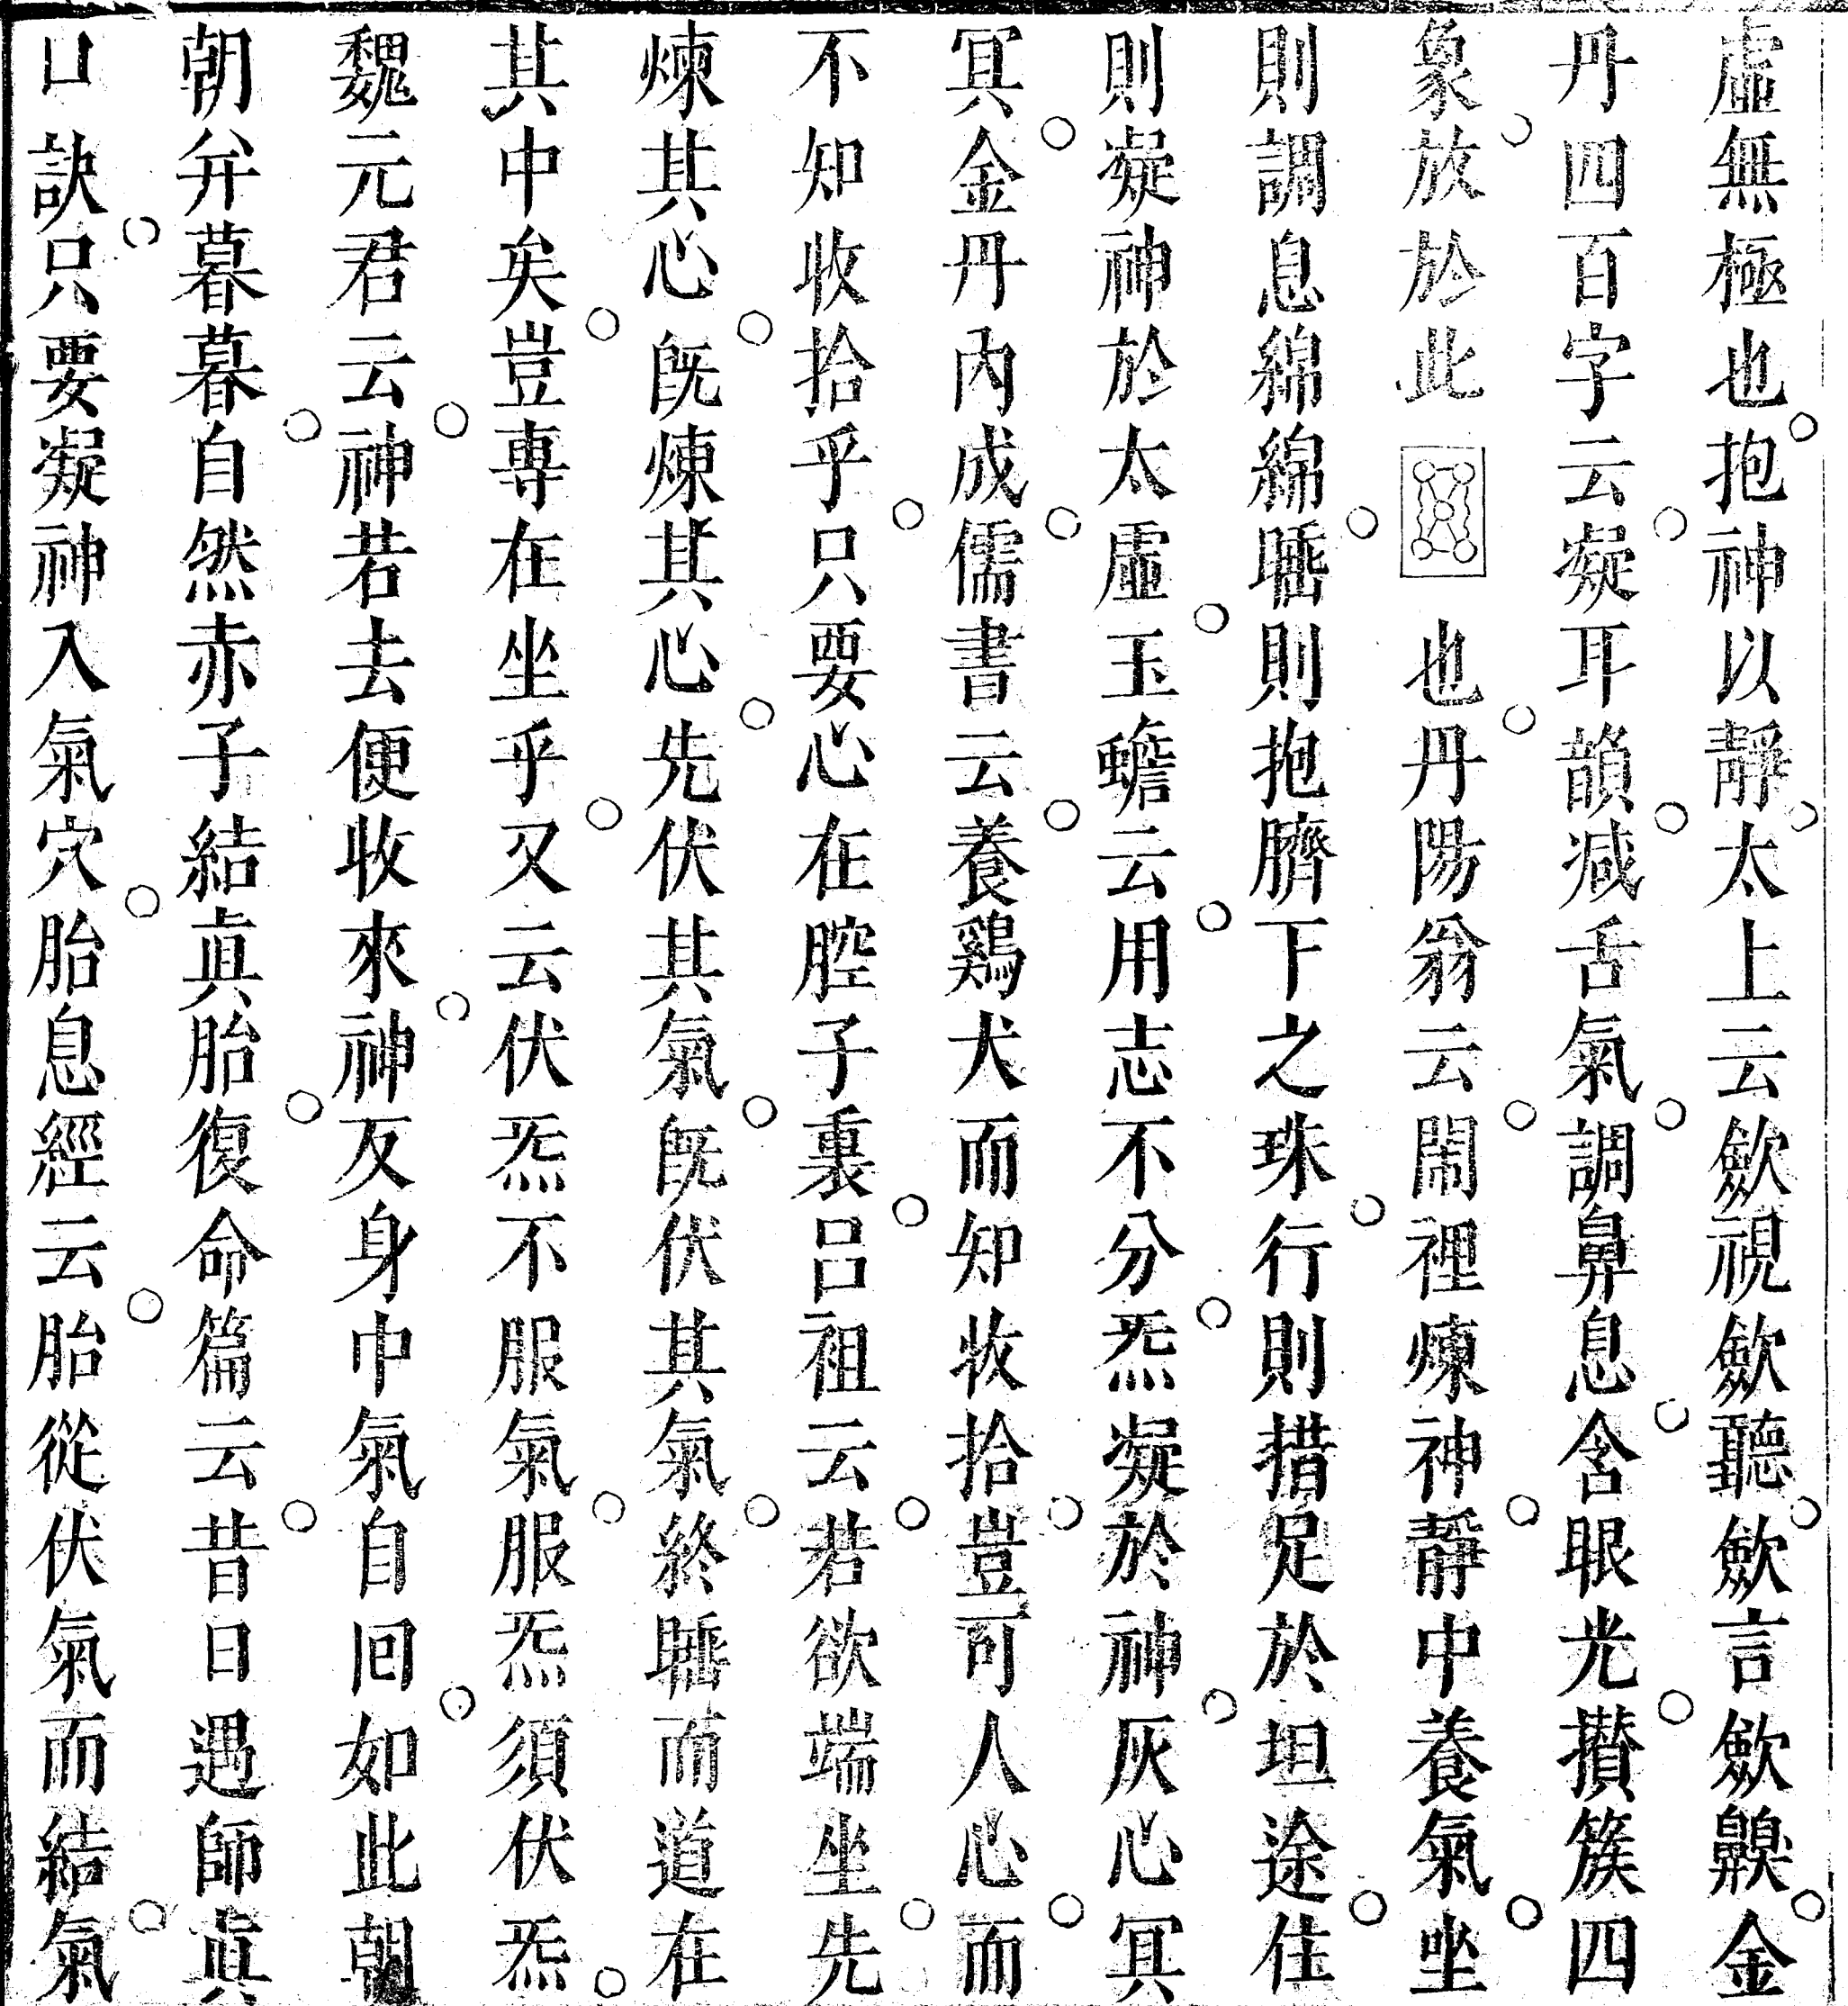 虛無極也。抱神以靜。太上云歛視歛聽。歛言歛齅。金
丹四百字云。凝耳韻。减舌氣。調鼻息。含眼光。攢簇四
象。放於此也。丹陽翁云。閙裡煉神。靜中養氣。坐
則調息綿綿。睡則抱臍下之珠。行則措足於坦途。住
則凝神於太虛。玉蟾云。用志不分。炁凝於神。灰心冥
冥。金丹內成。儒書云。養鷄犬而知收拾。豈可人心。而
不知收拾乎。只要心在腔子裏。呂祖云。若欲端坐先。
煉其心。旣煉其心。先伏其氣。旣伏其氣。終睡而道在
其中矣。豈專在坐乎。又云伏炁不服氣。服炁須伏炁。
魏元君云。神若去便收來。神反身中氣自回。如此朝
朝并暮暮。自然赤子結眞胎。復命篇云。昔日遇師眞
口訣。只要凝神入氣穴。胎息經云。胎從伏氣而結。氣